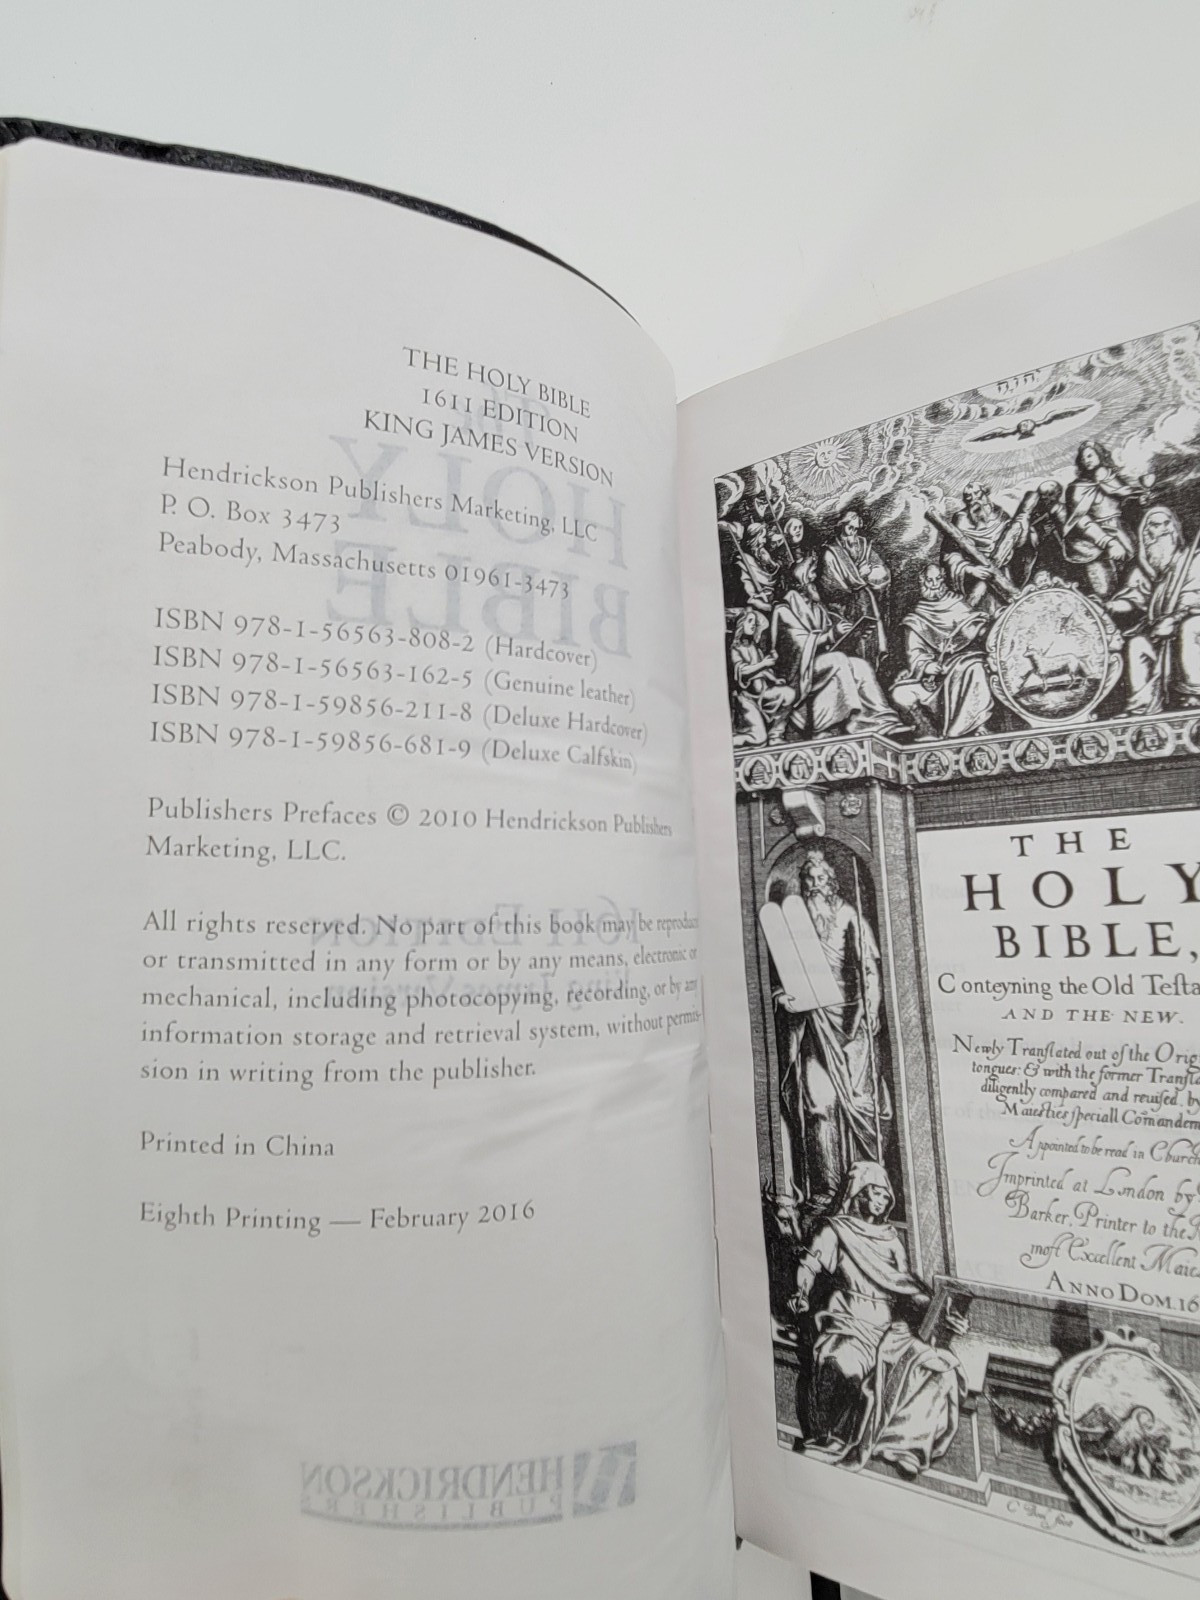 THE HOLY BIBLE
1611 EDITION
KING JAMES VERSION
Hendrickson Publishers Marketing, LLC
P. O. Box 3473
Peabody, Massachusetts 01961-3473
ISBN 978-1-56563-808-2 (Hardcover)
ISBN 978-1-56563-162-5 (Genuine leather)
ISBN 978-1-59856-211-8 (Deluxe Hardcover)
ISBN 978-1-59856-681-9 (Deluxe Calfskin)
Publishers Prefaces © 2010 Hendrickson Publishers
Marketing, LLC.
All rights reserved. No part of this book may be reproduc
or transmitted in any form or by any means, electronic or
mechanical, including photocopying, recording, or by any
information storage and retrieval system, without permis-
sion in writing from the publisher.
Printed in China
Eighth Printing — February 2016
HENDRICKSON
PUBLISHERS
יהוה
THE
HOLY
BIBLE,
Conteyning the Old Teſta
AND THE NEW.
Newly Tranſlated out of the Orig
tongues: & with the former Tranſla
diligently compared and reuiſed, by
Maieſties ſpeciall Cōmandem
Appointed to be read in Church
Imprinted at London by
Barker, Printer to the
moſt Excellent Maie
ANNO DOM. 16